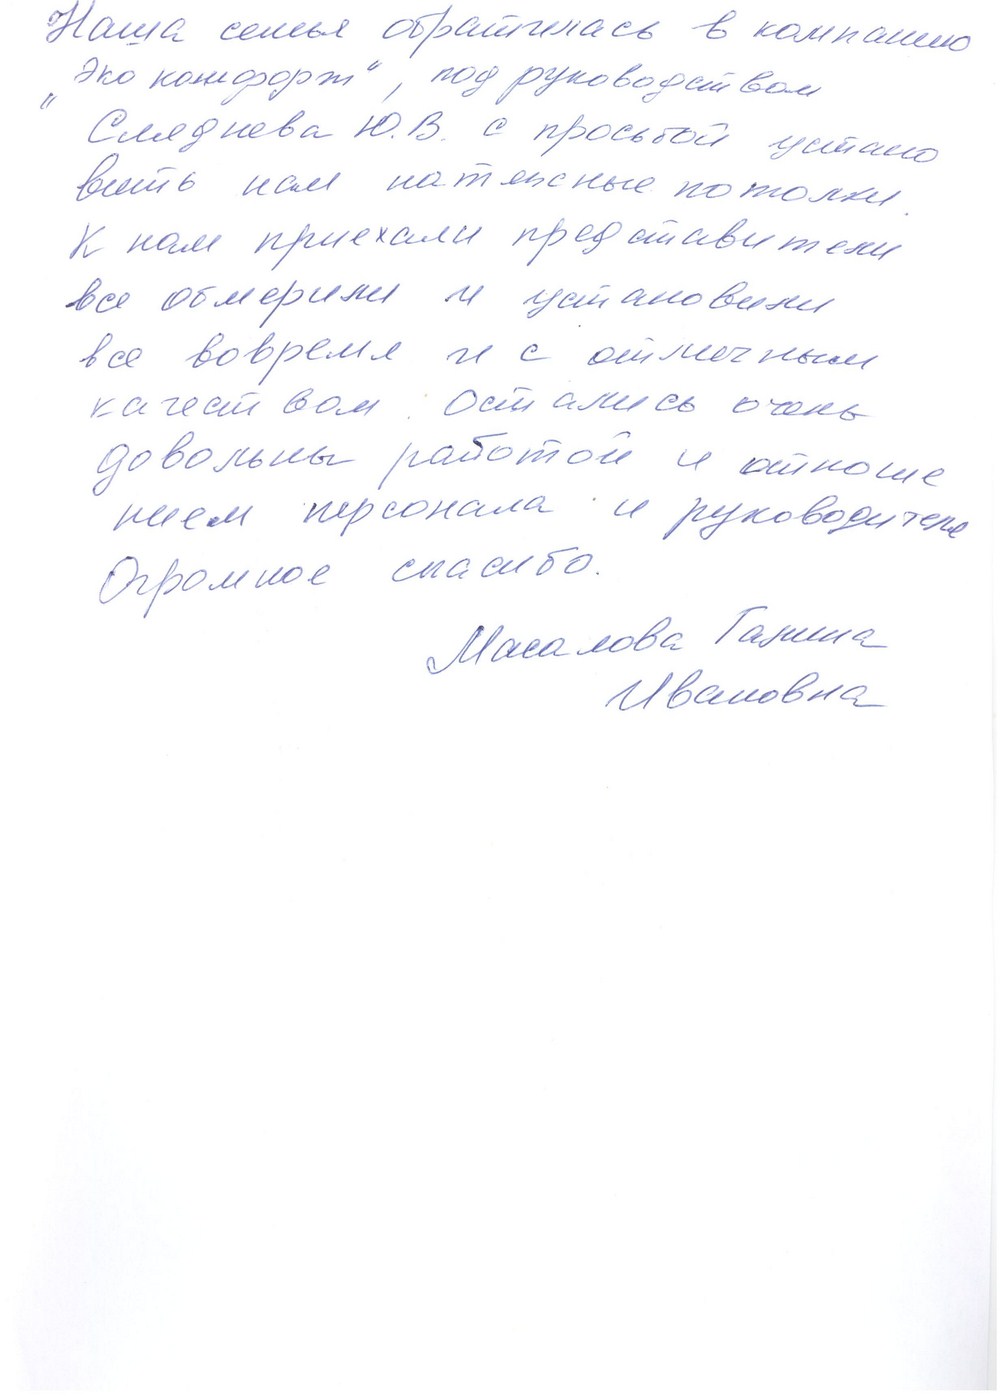 Наша семья обратилась в компанию
„Эко комфорт“, под руководством
Следнева Ю.В. с просьбой устано
вить нам натяжные потолки.
К нам приехали представители
все обмерили и установили
все вовремя и с отличным
качеством. Остались очень
довольны работой и отноше
нием персонала и руководителя
Огромное спасибо.
Масалова Галина
Ивановна